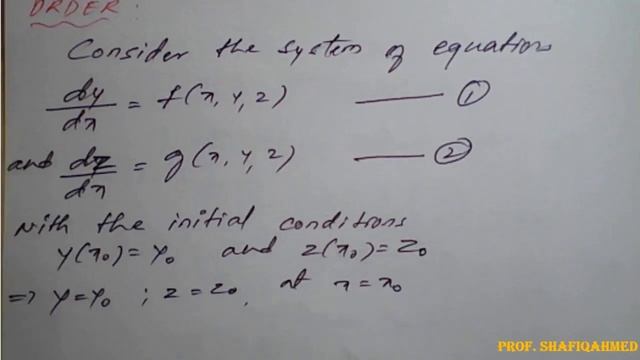 ORDER:
Consider the system of equations
dy/dx = f(x, y, z) —— ①
and dz/dx = g(x, y, z) —— ②
with the initial conditions
y(x₀) = y₀ and z(x₀) = z₀
⇒ y = y₀ ; z = z₀, at x = x₀
PROF. SHAFIQAHMED